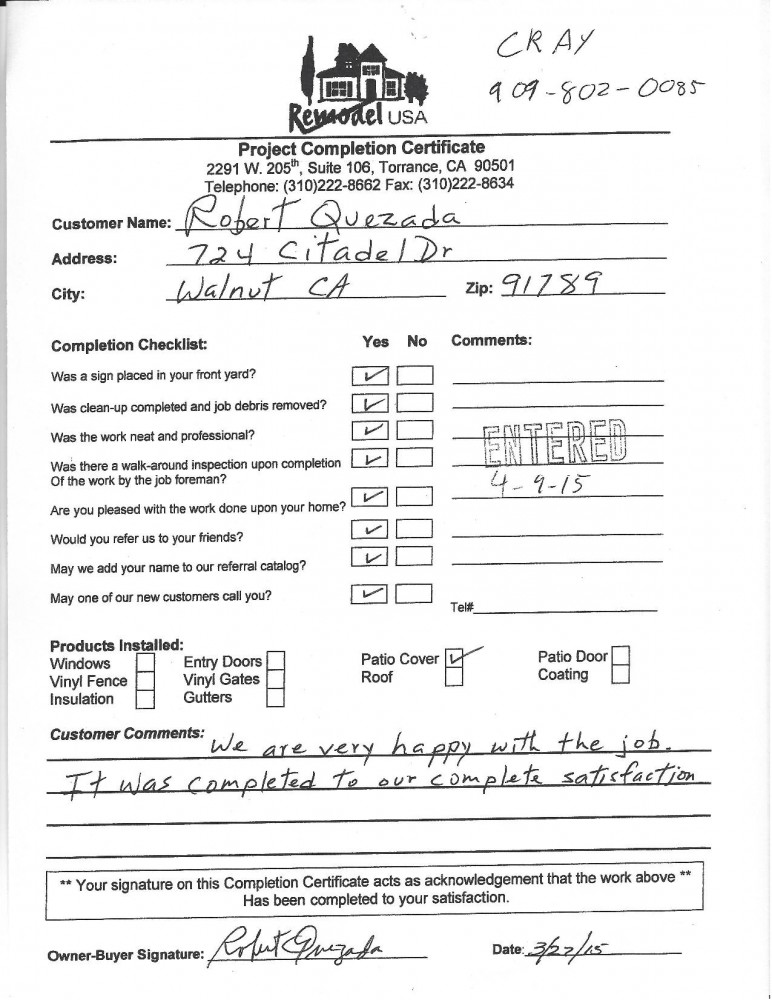 CRAY
909-802-0085
Remodel USA
Project Completion Certificate
2291 W. 205th, Suite 106, Torrance, CA 90501
Telephone: (310)222-8662 Fax: (310)222-8634
Customer Name: Robert Quezada
Address: 724 Citadel Dr
City: Walnut CA Zip: 91789
Completion Checklist: Yes No Comments:
Was a sign placed in your front yard?
Was clean-up completed and job debris removed?
Was the work neat and professional?
ENTERED
Was there a walk-around inspection upon completion
Of the work by the job foreman?
4-9-15
Are you pleased with the work done upon your home?
Would you refer us to your friends?
May we add your name to our referral catalog?
May one of our new customers call you?
Tel#
Products Installed:
Windows Entry Doors Patio Cover Patio Door
Vinyl Fence Vinyl Gates Roof Coating
Insulation Gutters
Customer Comments: We are very happy with the job.
It was completed to our complete satisfaction
** Your signature on this Completion Certificate acts as acknowledgement that the work above **
Has been completed to your satisfaction.
Owner-Buyer Signature: Robert Quezada Date: 3/22/15